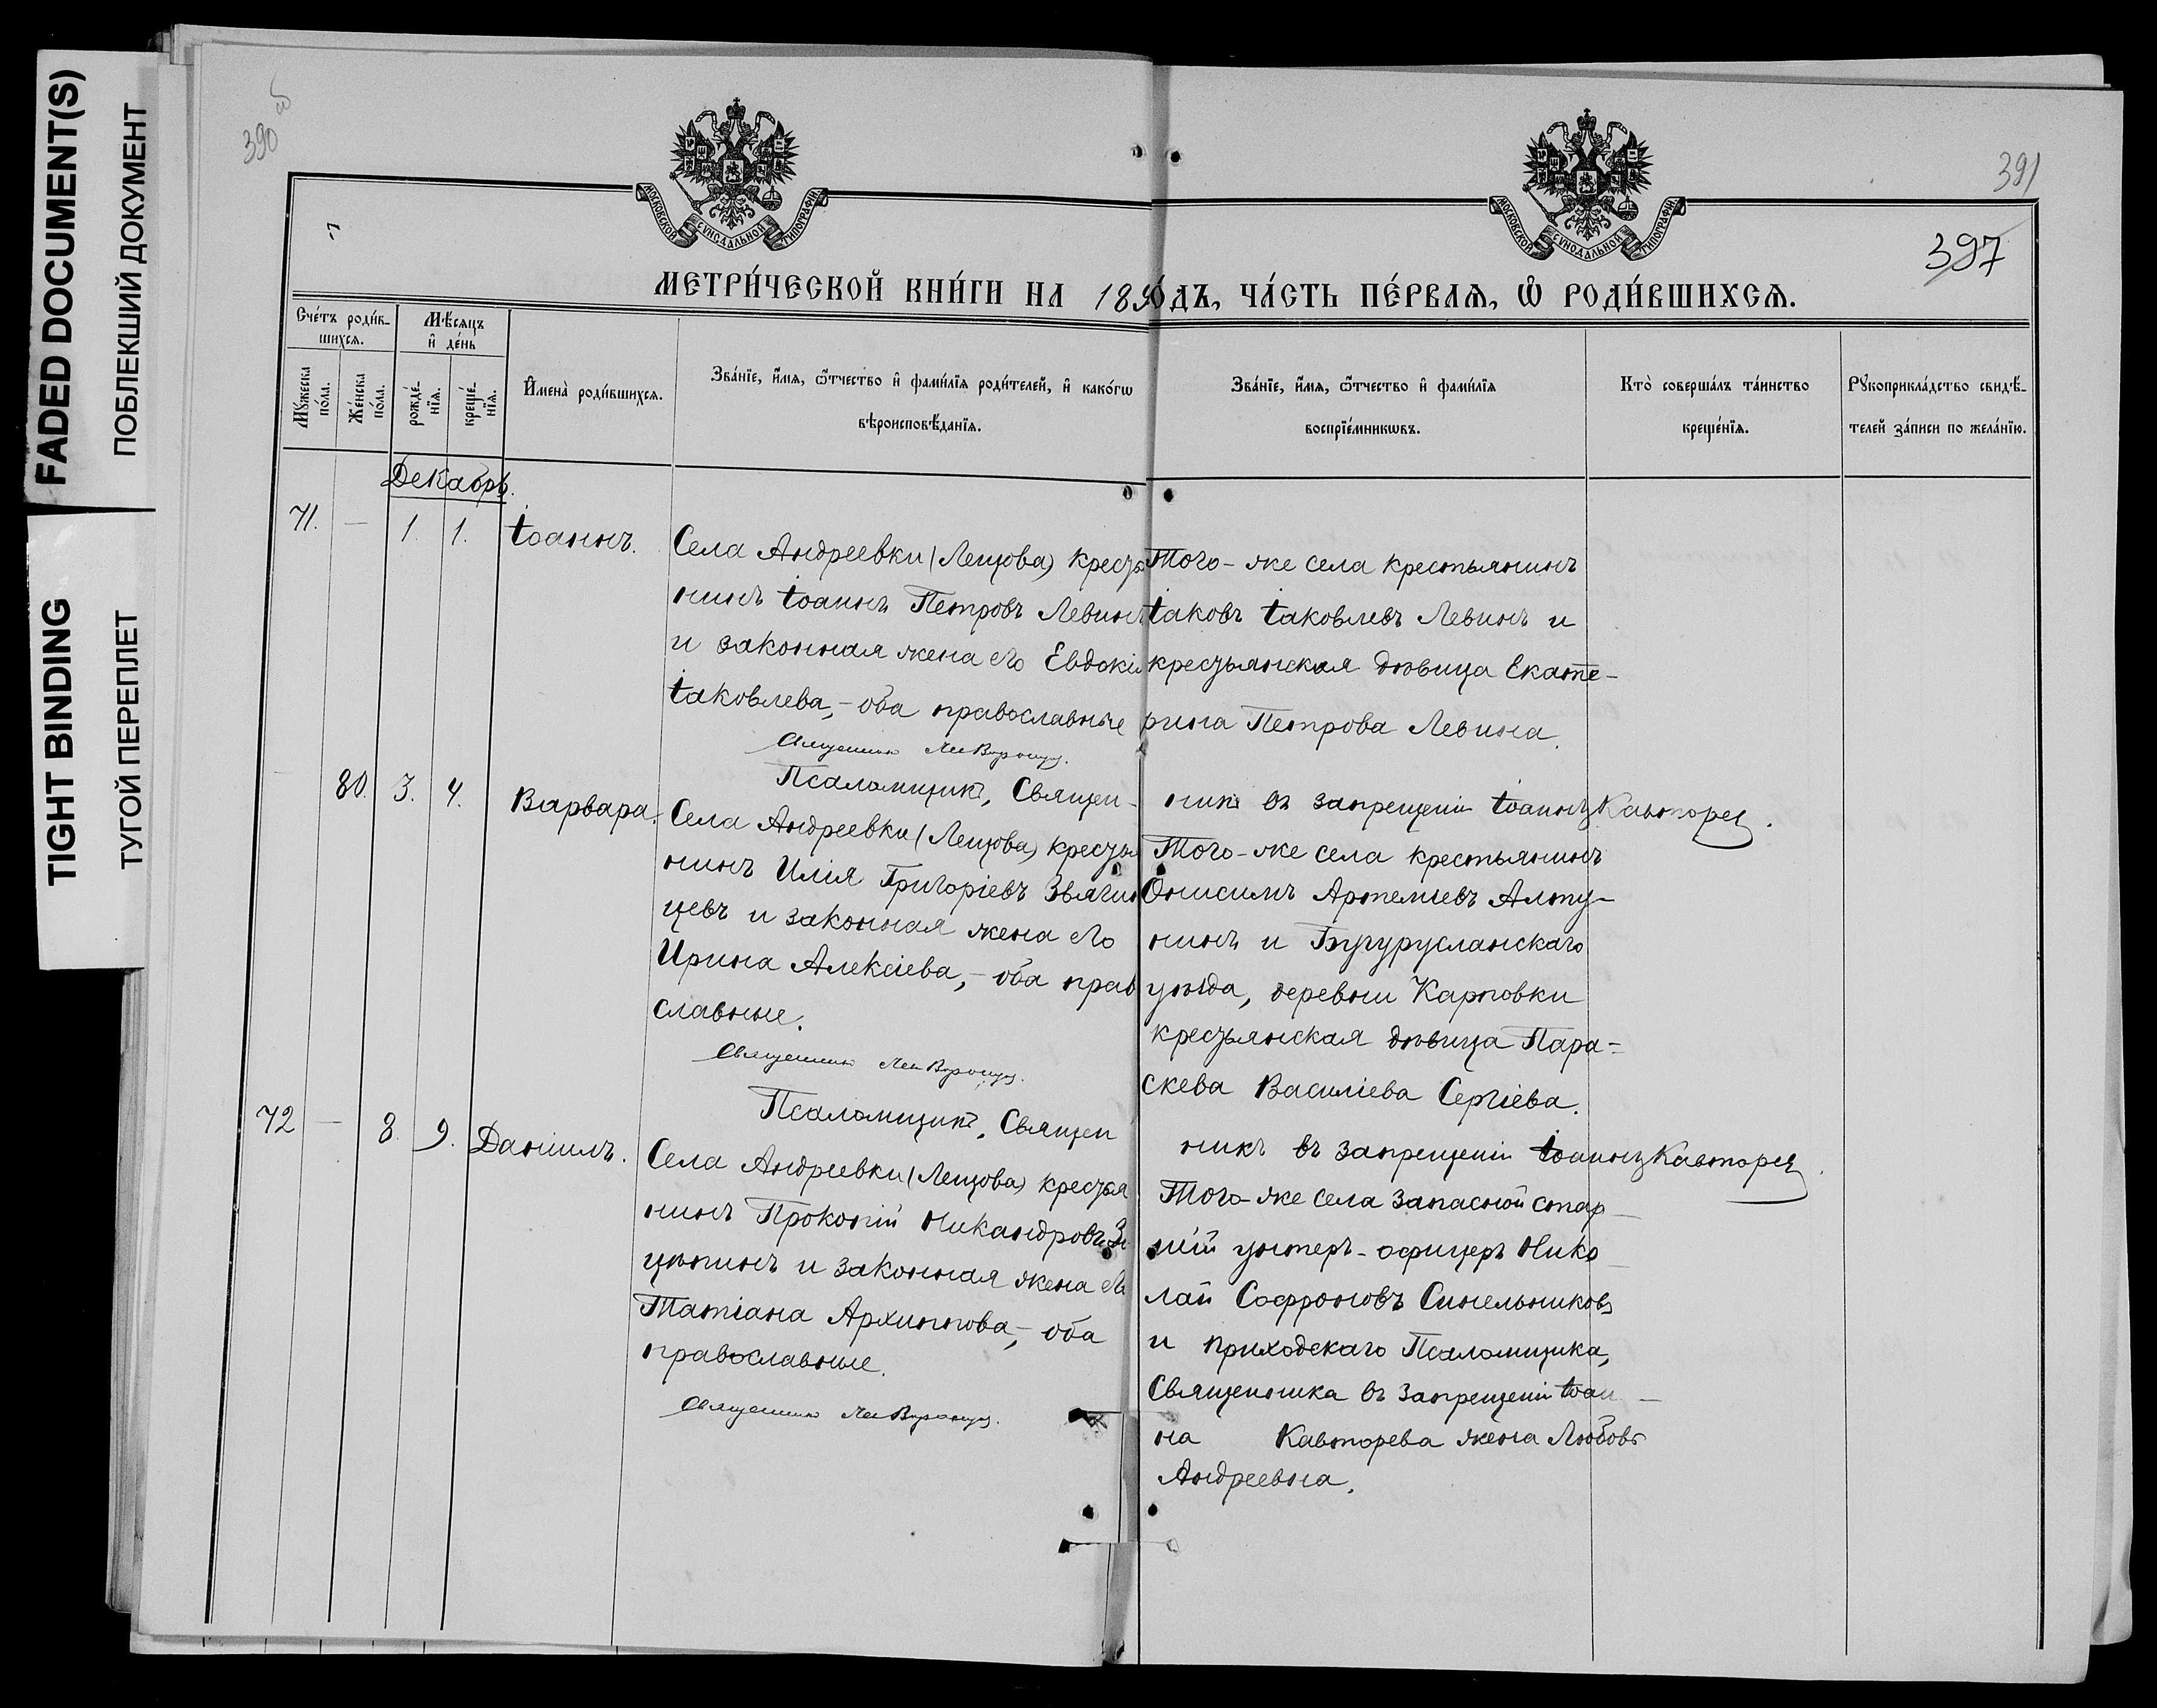 FADED DOCUMENT(S)
ПОБЛЕКШИЙ ДОКУМЕНТ
TIGHT BINDING
ТУГОЙ ПЕРЕПЛЕТ
390 об
391
397
МОСКОВСКОЙ СѴНОДАЛЬНОЙ ТИПОГРАФІИ
МОСКОВСКОЙ СѴНОДАЛЬНОЙ ТИПОГРАФІИ
МЕТРИ́ЧЕСКОЙ КНИ́ГИ НА 189 О́ДЪ, ЧА́СТЬ ПЕ́РВАѦ, Ѡ҆ РОДИ́ВШИХСѦ.
Сче́тъ роди́в-
шихсѧ.
Мѣ́сѧцъ
и҆ де́нь
Мꙋ́жеска
по́ла.
Же́нска
по́ла.
рожде́-
нїѧ.
креще́-
нїѧ.
И҆мена̀ роди́вшихсѧ.
Зва́нїе, и҆́мѧ, ѻ҆́тчество и҆ фами́лїѧ роди́телей, и҆ како́гѡ
вѣроисповѣ́данїѧ.
Зва́нїе, и҆́мѧ, ѻ҆́тчество и҆ фами́лїѧ
воспрїе́мникѡвъ.
Кто̀ соверша́лъ та́инство
креще́нїѧ.
Рꙋкоприкла́дство свидѣ́-
телей за́писи по жела́нїю.
Декабрь.
71. — 1. 1. Іоаннъ.
Села Андреевки (Лещова) крестья
нинъ Іоаннъ Петровъ Левинъ
и законная жена его Евдокія
Іаковлева, – оба православные
Священникъ
Того-же села крестьянинъ
Іаковъ Іаковлевъ Левинъ и
крестьянская дѣвица Екате-
рина Петрова Левина.
Псаломщикъ, Священ-
никъ въ запрещеніи Іоаннъ Кавторев
80. 3. 4. Варвара.
Села Андреевки (Лещова) крестья
нинъ Илія Григоріевъ Звягин
цевъ и законная жена его
Ирина Алексіева, – оба прав
славные.
Священникъ
Того-же села крестьянинъ
Онисимъ Артеміевъ Алту-
нинъ и Бугурусланскаго
уѣзда, деревни Карповки
крестьянская дѣвица Пара-
скева Василіева Сергіева.
Псаломщикъ, Священ
никъ въ запрещеніи Іоаннъ Кавторев
72 — 8. 9. Даніилъ.
Села Андреевки (Лещова) крестья
нинъ Прокопій Никандровъ
и законная жена его
Татіана Архиппова, – оба
православные.
Священникъ
Того-же села запасной стар
шій унтеръ-офицеръ Нико
лай Софроновъ Синельниковъ
и приходскаго Псаломщика,
Священника въ запрещеніи Іоан-
на Кавторева жена Любовь
Андреевна.